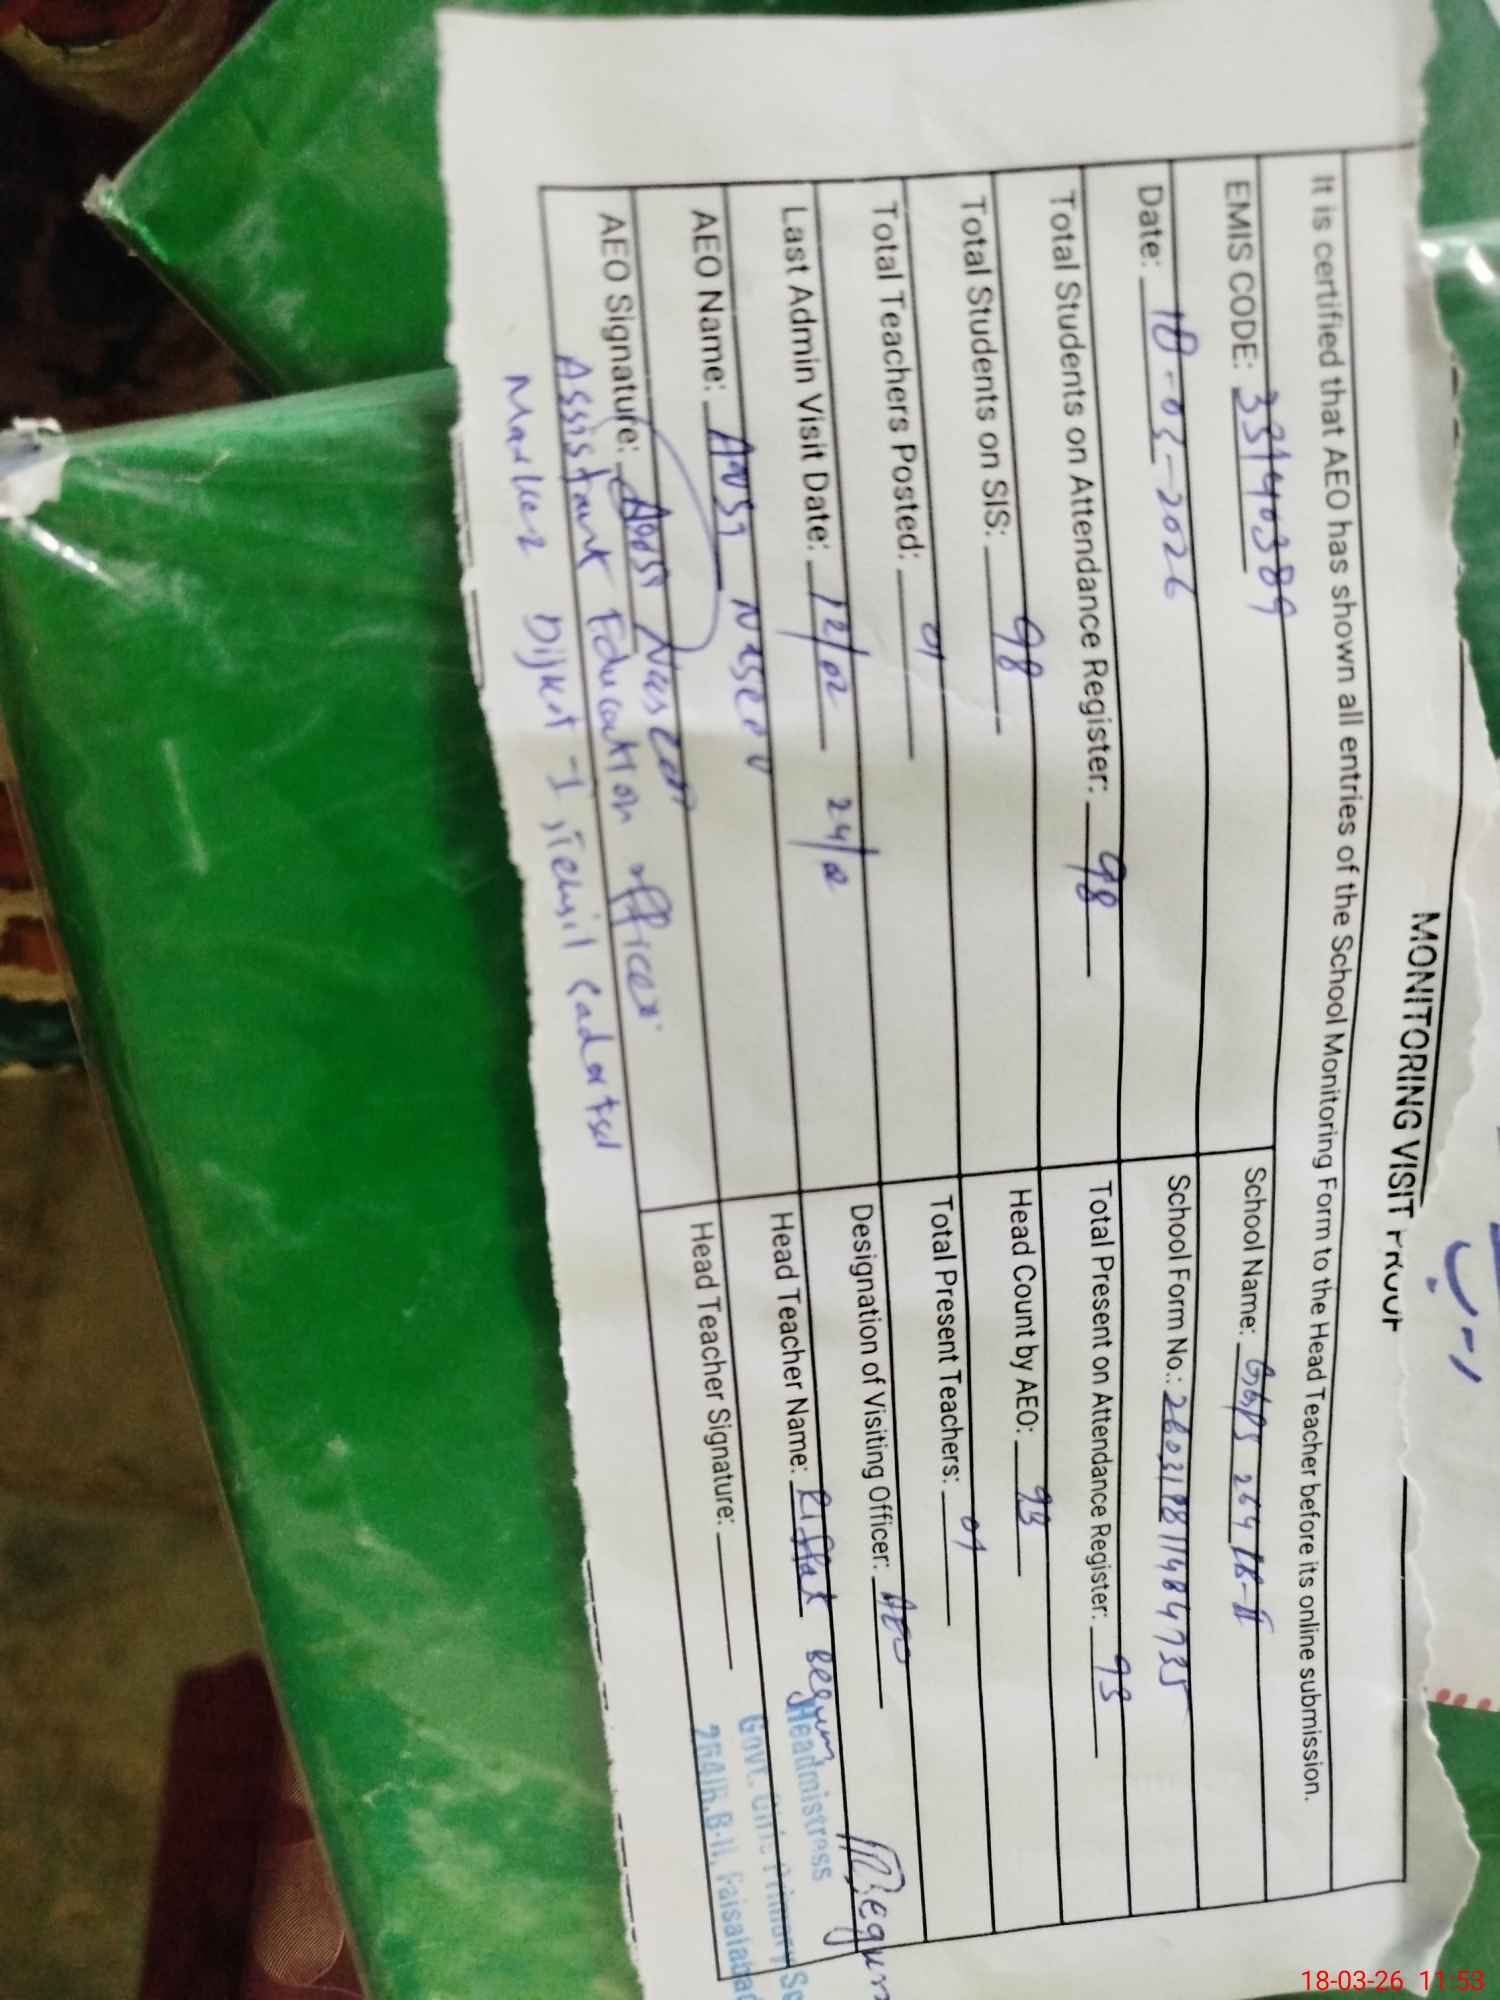 MONITORING VISIT PROOF
It is certified that AEO has shown all entries of the School Monitoring Form to the Head Teacher before its online submission.
EMIS CODE: 33140389 School Name: GGPS 264 RB-II
Date: 18-03-2026 School Form No.:
Total Students on Attendance Register: 98 Total Present on Attendance Register: 93
Total Students on SIS: 98 Head Count by AEO: 93
Total Teachers Posted: 01 Total Present Teachers: 01
Last Admin Visit Date: 12/02 24/02 Designation of Visiting Officer: AEO
AEO Name: Head Teacher Name: Riffat Begum
AEO Signature: Head Teacher Signature: Begum
Assistant Education officer
Markaz
Headmistress
Govt. Girls Primary Sc
264/R.B-II, Faisalabad
18-03-26 11:53